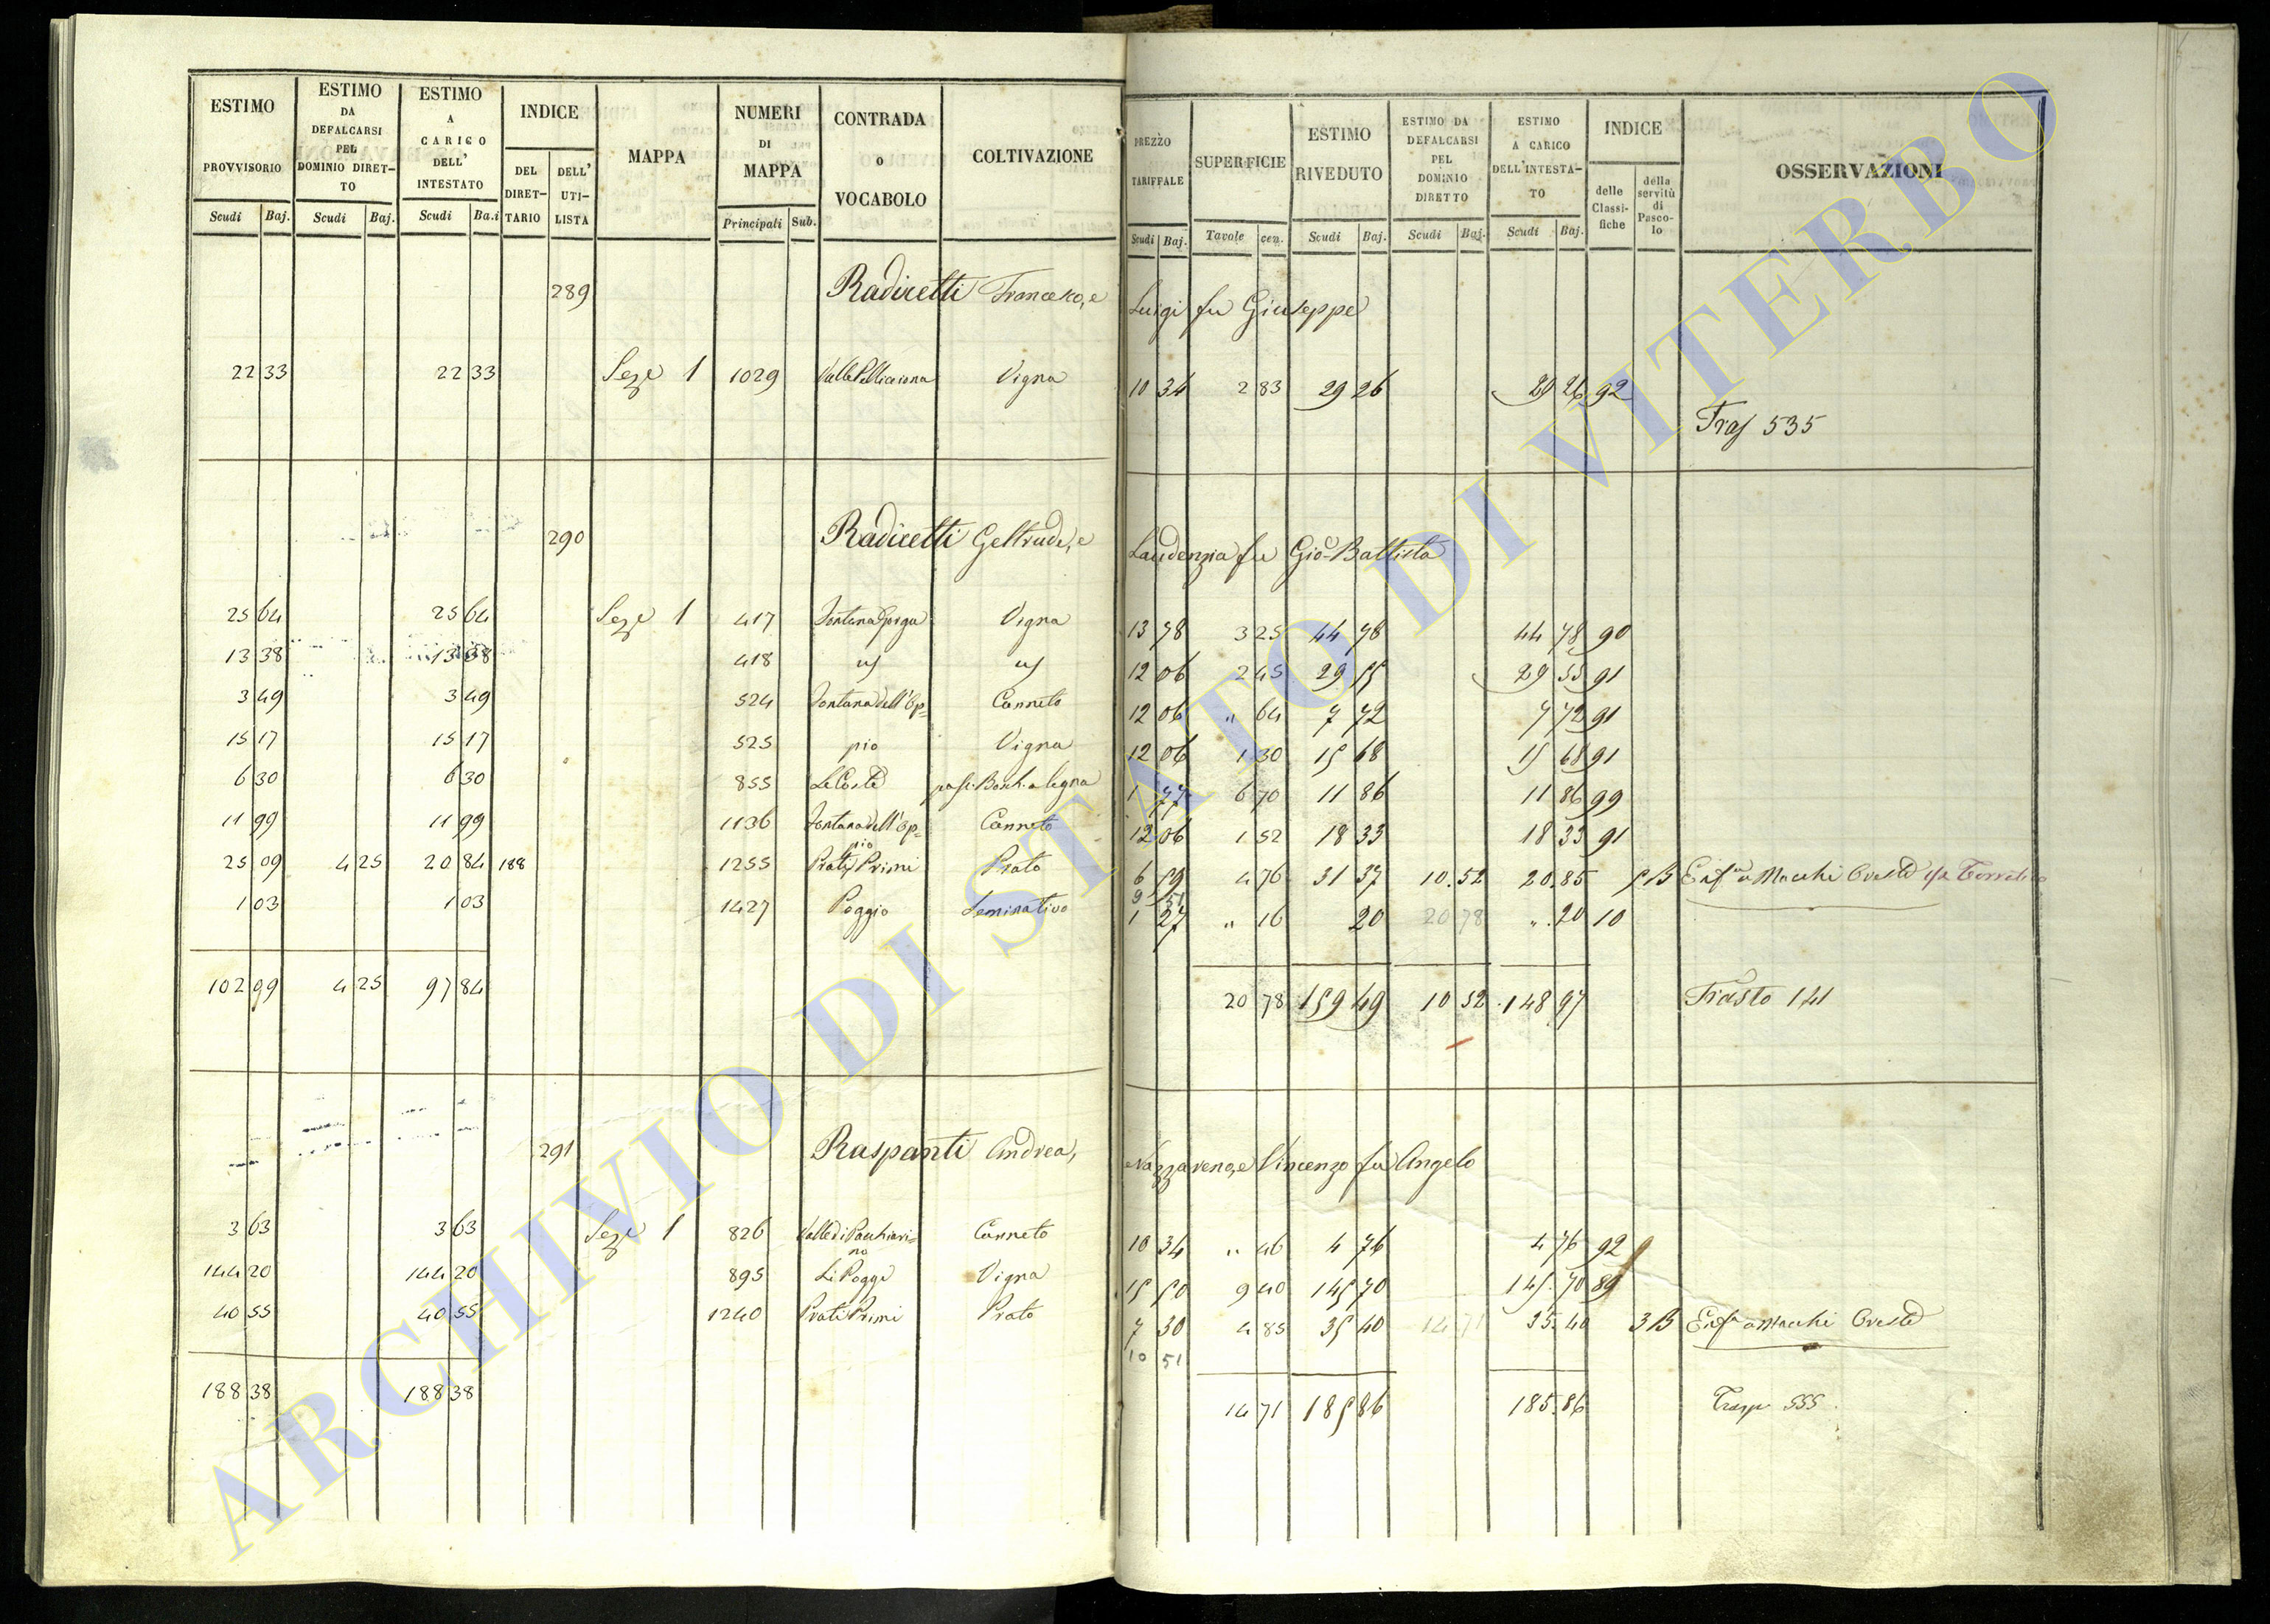 ESTIMO PROVVISORIO Scudi Baj.
ESTIMO DA DEFALCARSI PEL DOMINIO DIRET-TO Scudi Baj.
ESTIMO A CARICO DELL' INTESTATO Scudi Ba.i
INDICE DEL DIRET-TARIO DELL' UTI-LISTA
MAPPA
NUMERI DI MAPPA Principali Sub.
CONTRADA o VOCABOLO
COLTIVAZIONE
PREZZO TARIFFALE Scudi Baj.
SUPERFICIE Tavole cen.
ESTIMO RIVEDUTO Scudi Baj.
ESTIMO DA DEFALCARSI PEL DOMINIO DIRETTO Scudi Baj.
ESTIMO A CARICO DELL'INTESTA-TO Scudi Baj.
INDICE delle Classi-fiche della servitù di Pasco-lo
OSSERVAZIONI
289 Radicetti Francesco, e Luigi fu Giuseppe
22 33 22 33 Seze 1 1029 Valle Pellicciona Vigna 10 34 2 83 29 26 29 26 92
Trasf 535
290 Radicetti Geltrude, e Laudenzia fu Gio Battista
25 64 25 64 Seze 1 417 Fontana Gorga Vigna 13 78 3 25 44 78 44 78 90
13 38 13 38 418 " " 12 06 2 45 29 55 29 55 91
3 49 3 49 524 Fontana dell'Op= Canneto 12 06 " 64 7 72 7 72 91
15 17 15 17 525 pio Vigna 12 06 1 30 15 68 15 68 91
6 30 6 30 855 Le Coste pas. Bosch. a legna 1 77 6 70 11 86 11 86 99
11 99 11 99 1136 Fontana dell'Op=pio Canneto 12 06 1 52 18 33 18 33 91
25 09 4 25 20 84 188 1255 Prati Primi Prato 6 59 4 76 31 37 10.52 20.85 5 B Enf.a a Macchi Oreste
9 51
1 03 1 03 1427 Poggio Seminativo 1 27 " 16 20 20 78 " 20 10
102 99 4 25 97 84 20 78 159 49 10 52 148 97 Trasto 141
291 Raspanti Andrea, Nazzareno, e Vincenzo fu Angelo
3 63 3 63 Seze 1 826 Valle di Pacchiari=no Canneto 10 34 " 46 4 76 4 76 92
144 20 144 20 895 Li Poggi Vigna 15 50 9 40 145 70 145.70 89
40 55 40 55 1240 Prati Primi Prato 7 30 4 85 35 40 14 71 35.40 3 B Enf.a a Macchi Oreste
10 51
188 38 188 38 14 71 185 86 185.86 Trasp 555
ARCHIVIO DI STATO DI VITERBO